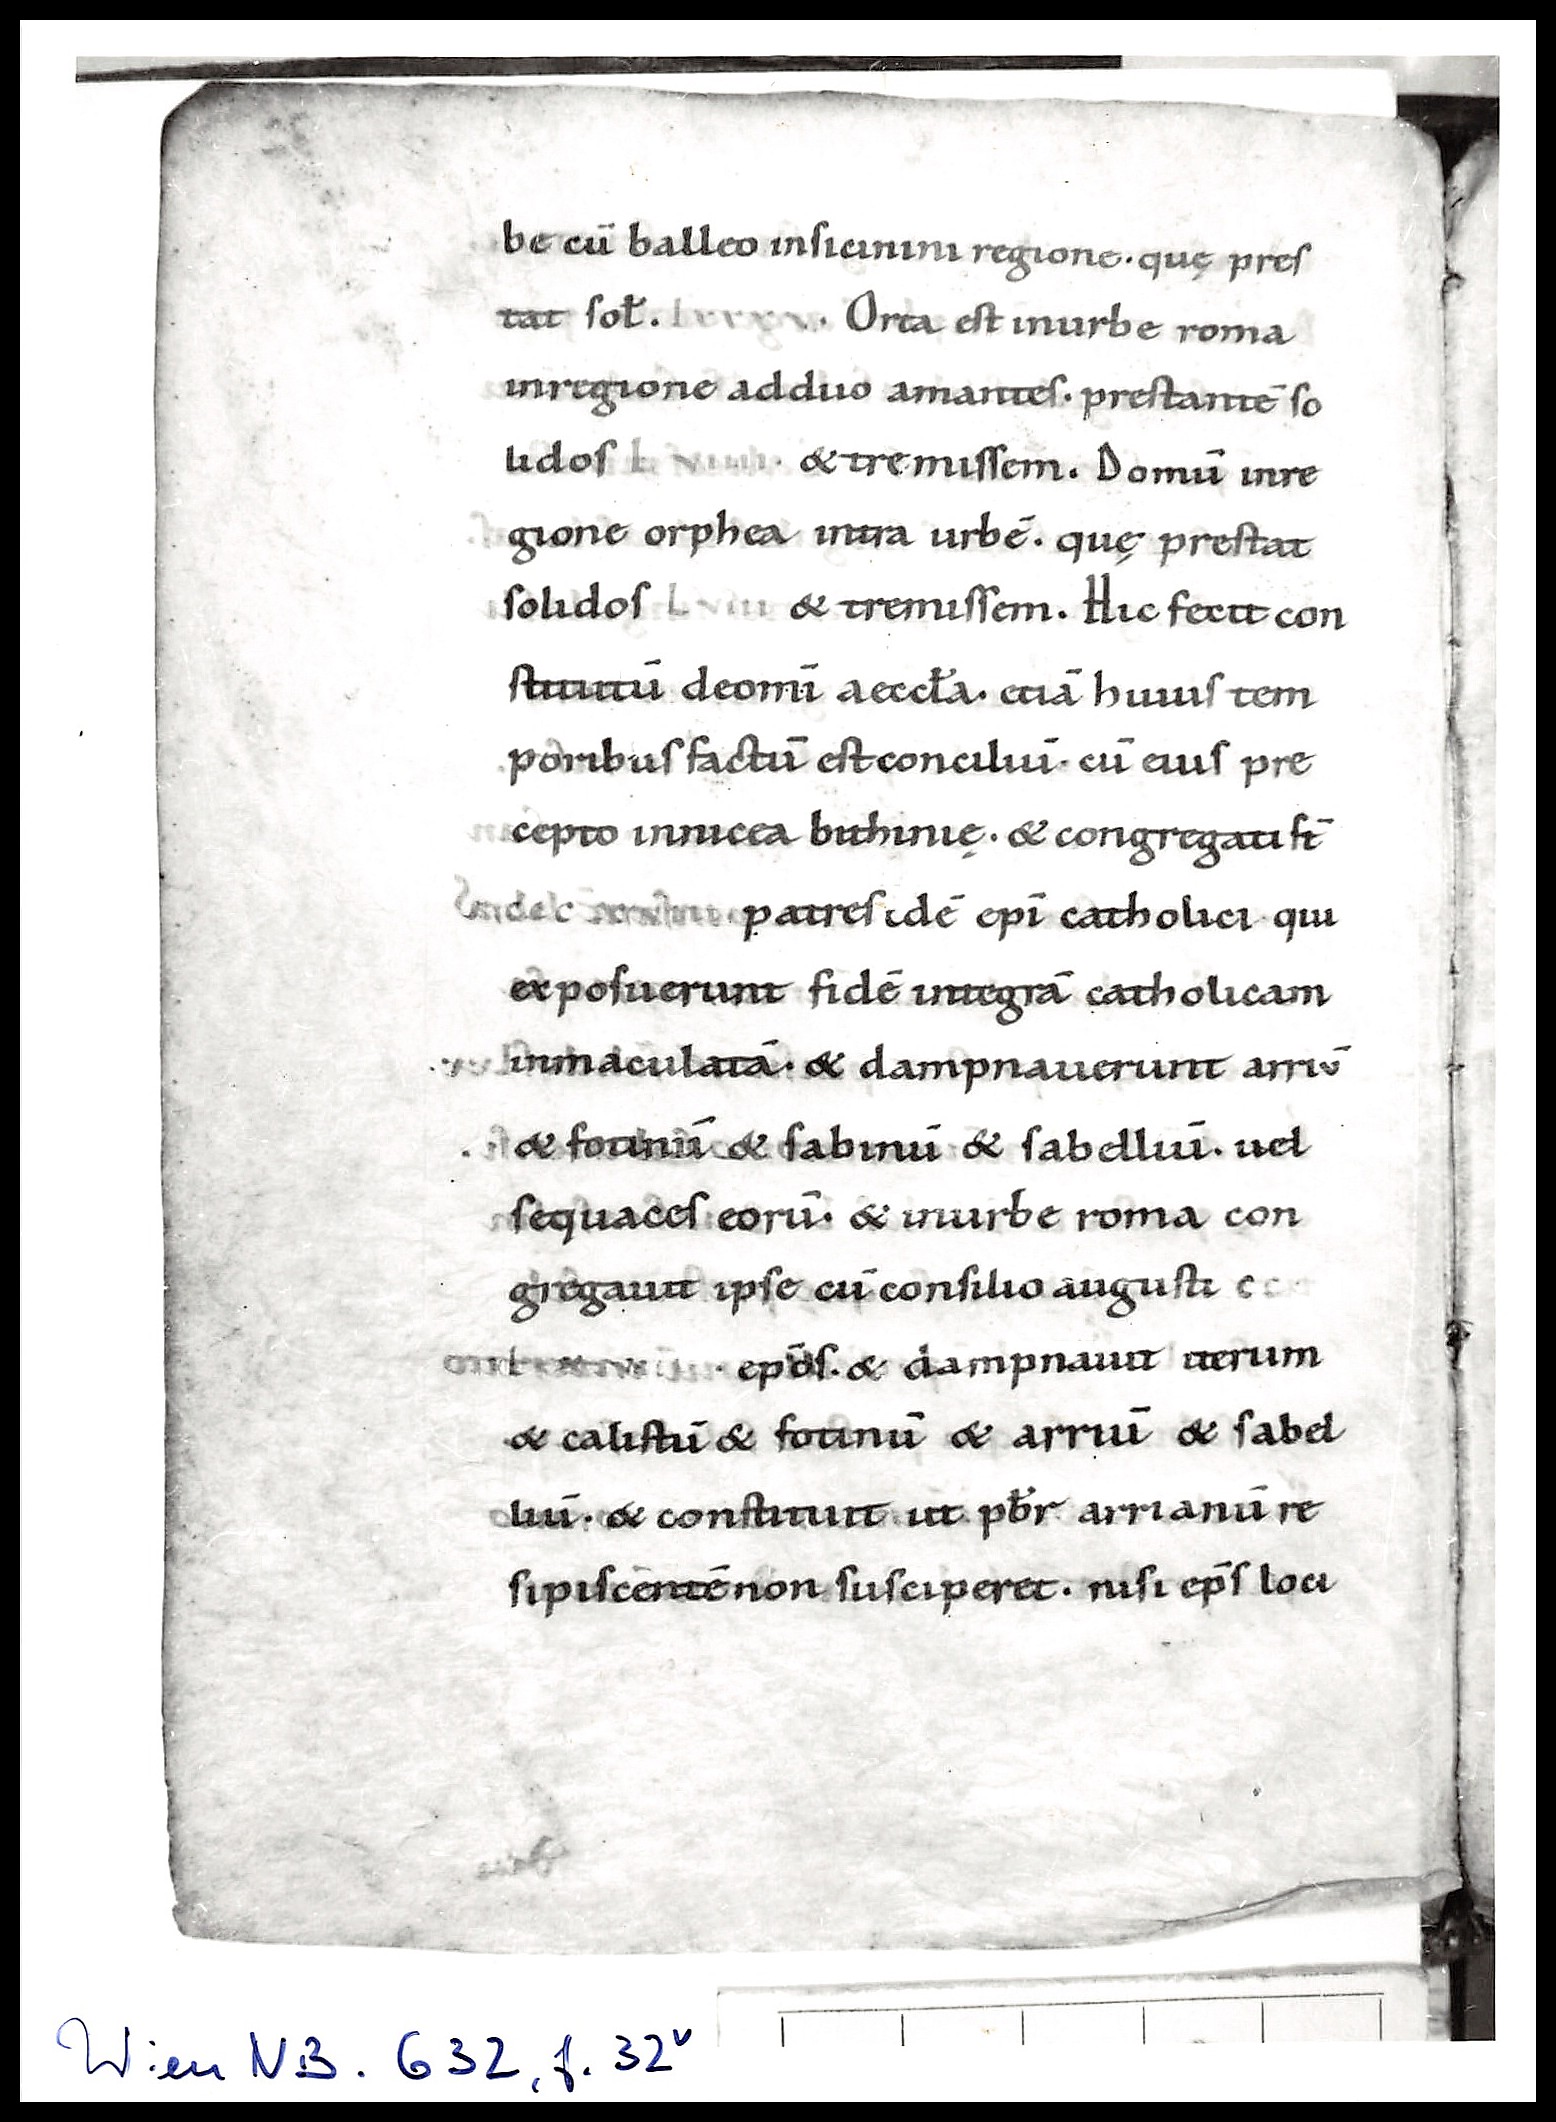 be cū balleo insicinini regione. quę pres
tat sol̃. lxxxv. Orta est inurbe roma
inregione adduo amantes. prestantē so
lidos & tremissem. Domū inre
gione orphea intra urbē. quę prestat
solidos lviii & tremissem. Hic fecit con
stitutū deomī aeccl̃a. etiā huius tem
poribus factū est conciliū. cū eius pre
cepto innicea bithinię. & congregati st̄
patres idē epī catholici qui
exposuerunt fidē integrā catholicam
inmaculatā. & dampnauerunt arriū
& fotinū & sabinū & sabelliū. uel
sequaces eorū. & inurbe roma con
gregauit ipse cū consilio augusti
ep̄os. & dampnauit iterum
& calistū & fotinū & arriū & sabel
liū. & constituit ut pb̃r arrianū re
sipiscentē non susciperet. nisi ep̄s loci
Wien NB. 632, f. 32v